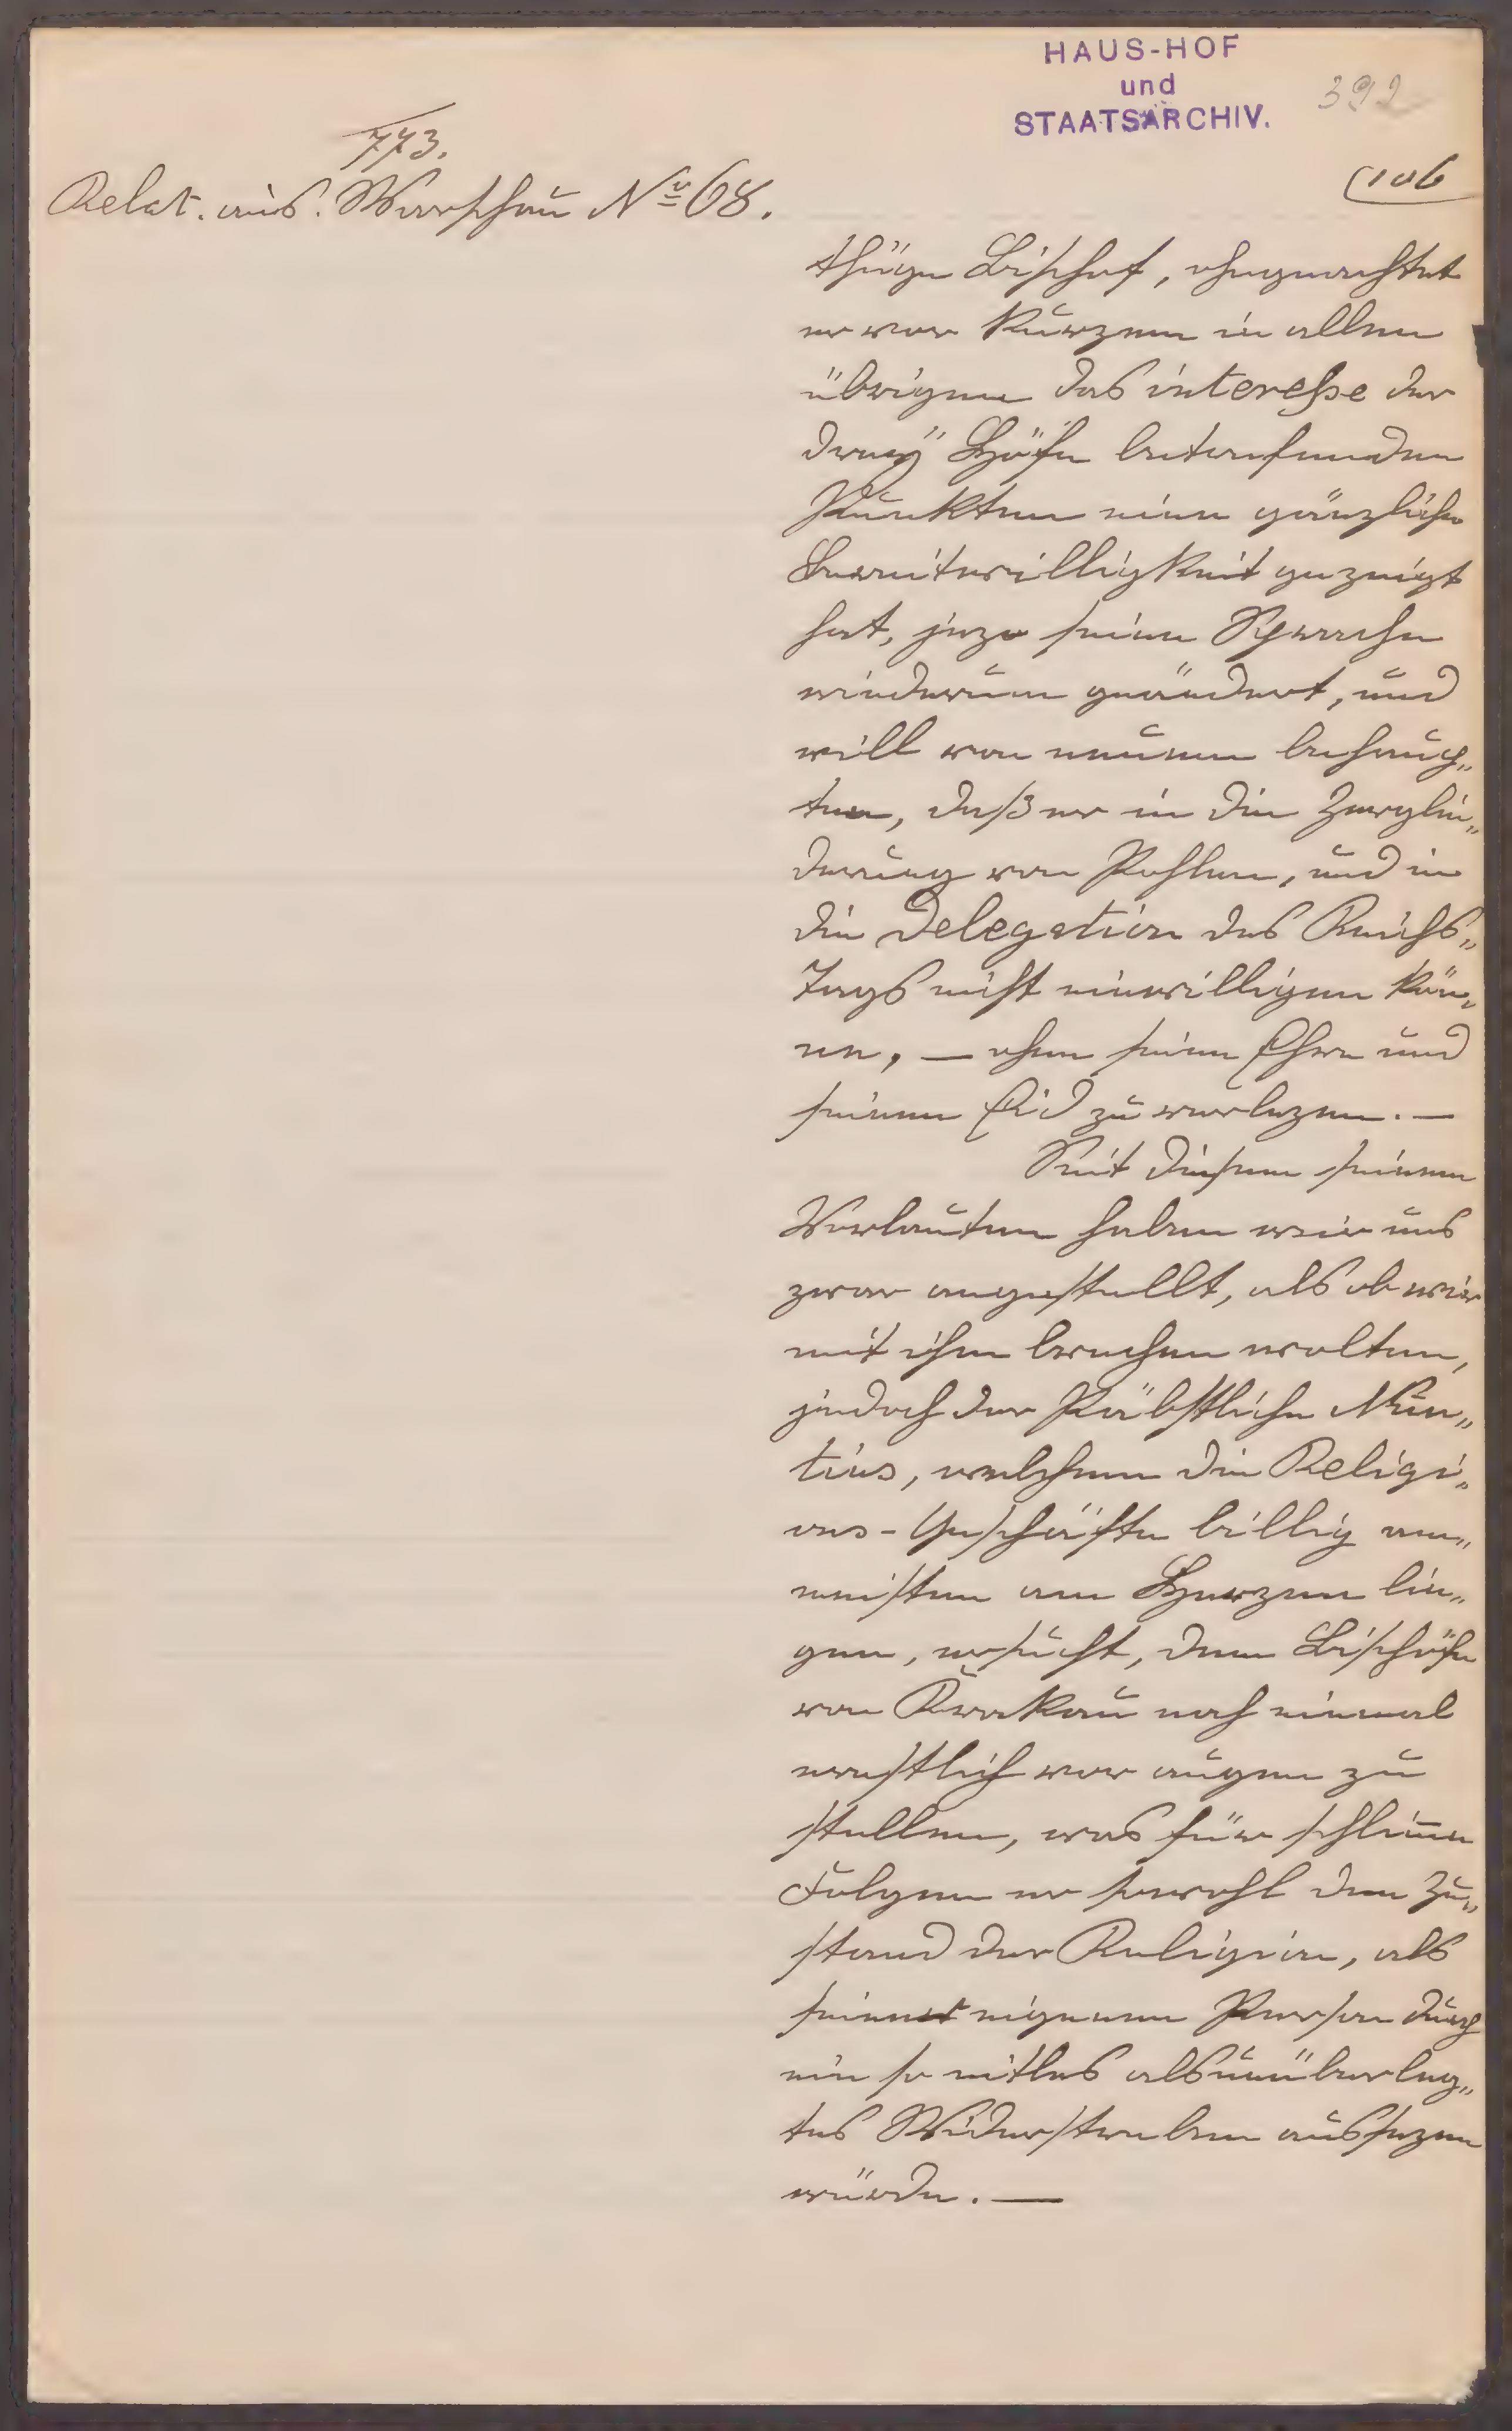 HAUS-HOF
und
STAATSARCHIV.
392
106
773.
Relat. aus. Warschau No 68.
thüge Bischof, ohngeachtet
er vor kurzem in allen
übrigen das interesse der
dreÿ Höfe betrefenden
Punkten eine gänzliche
Bereitwilligkeit gezeigt
hat, jezo seine Sprache
wiederum geändert, und
will von neuem behaup„
ten, daß er in die Zerglie„
derung von Pohlen, und in
die Delegation des Reichs„
Tags nicht einwilligen kön„
ne, — ohne seine Ehre und
seinen Eid zu verlezen. —
Mit diesem seinem
Verlauten haben wir uns
zwar angestellt, als ob wir
mit ihm brechen wolten,
jedoch der Päbstliche Nun„
tius, welchem die Religi„
ons-Geschäfte billig am„
meisten am Herzen lie„
gen, ersucht, dem Bischofe
von Krakau noch einmal
ernstlich vor augen zu
stellen, was für schlim̅e
Folgen er sowohl den Zu„
stand der Religion, als
seine eigenen Person durch
ein so eitles als unüberleg„
tes Widerstreben aussezen
würde. —